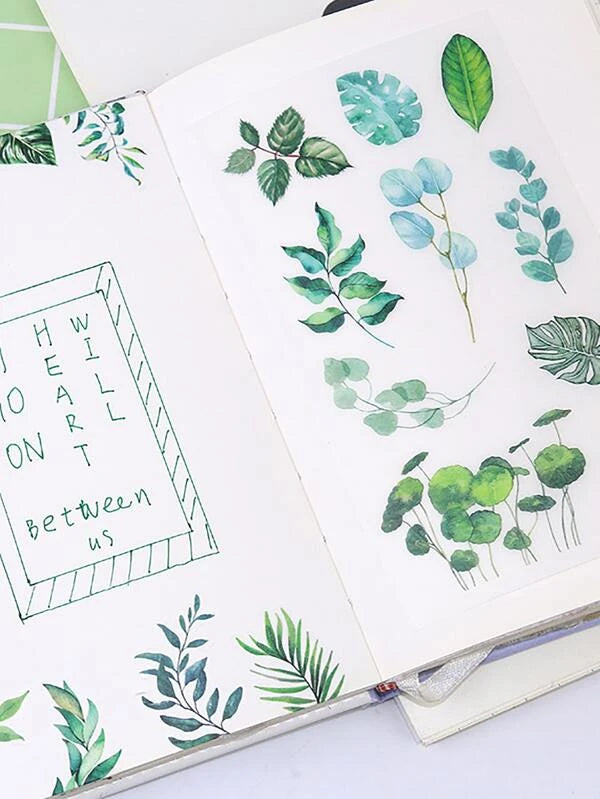 HEART
WILL
ON
Between
us